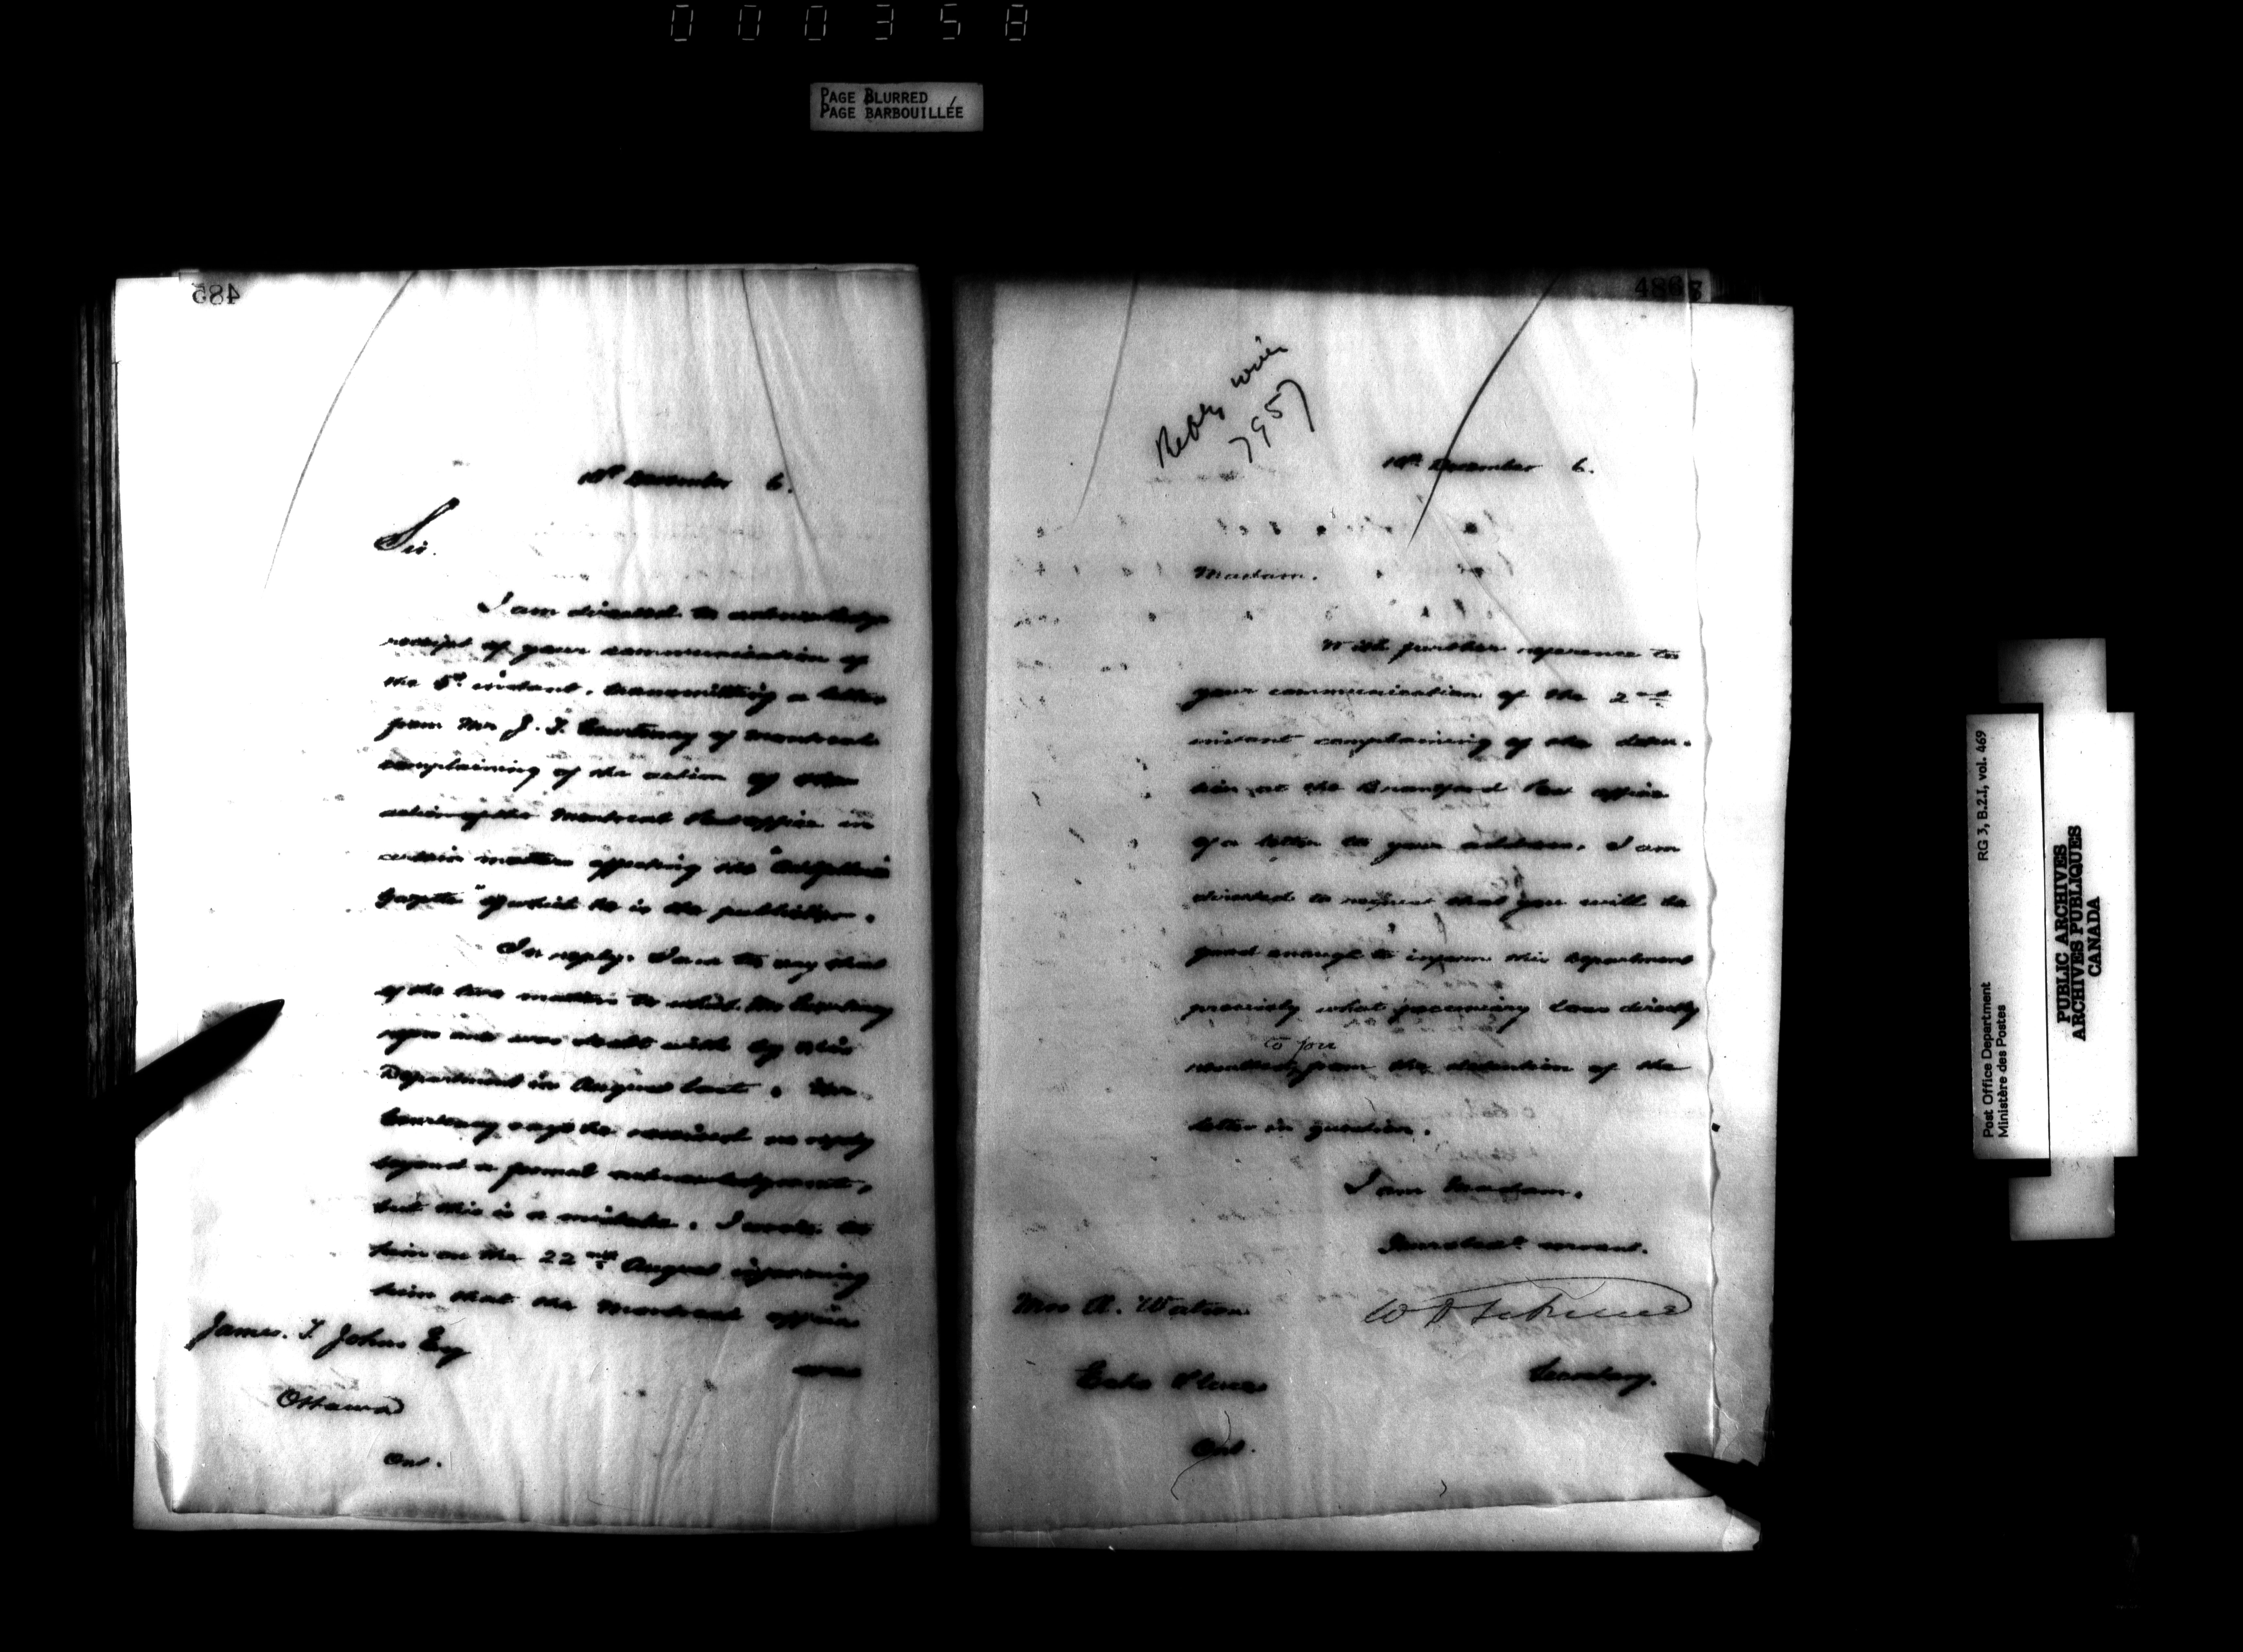 000358
PAGE BLURRED
PAGE BARBOUILLÉE
485
December 6.
Sir.
I am directed to acknowledge
receipt of your communication of
the 5th instant, transmitting a letter
from Mr J. T. Courtenay of Montreal
complaining of the action of the
action of the Montreal Post office in
certain matters affecting the
Gazette" of which he is the publisher.
In reply, I am to say that
of the two matters to which Mr Courtenay
refers one was dealt with by this
Department in August last. Mr.
Courtenay says he received no reply
beyond a formal acknowledgment,
but this is a mistake. I wrote to
him on the 22nd August informing
him that the Montreal office
James. T. John Esq
Ottawa
Ont.
486
7957
December 6.
Madam.
With further reference to
your communication of the 2nd
instant complaining of the deten-
tion at the Brantford Post office
of a letter to your address. I am
directed to request that you will be
good enough to inform this Department
precisely what pecuniary loss directly
to you
resulted from the detention of the
letter in question.
I am Madam.
Your obedt. servant.
Mrs A. Watson
Echo Place
Secretary.
Ont.
Post Office Department RG 3, B.2.I, vol. 469
Ministère des Postes
PUBLIC ARCHIVES
ARCHIVES PUBLIQUES
CANADA